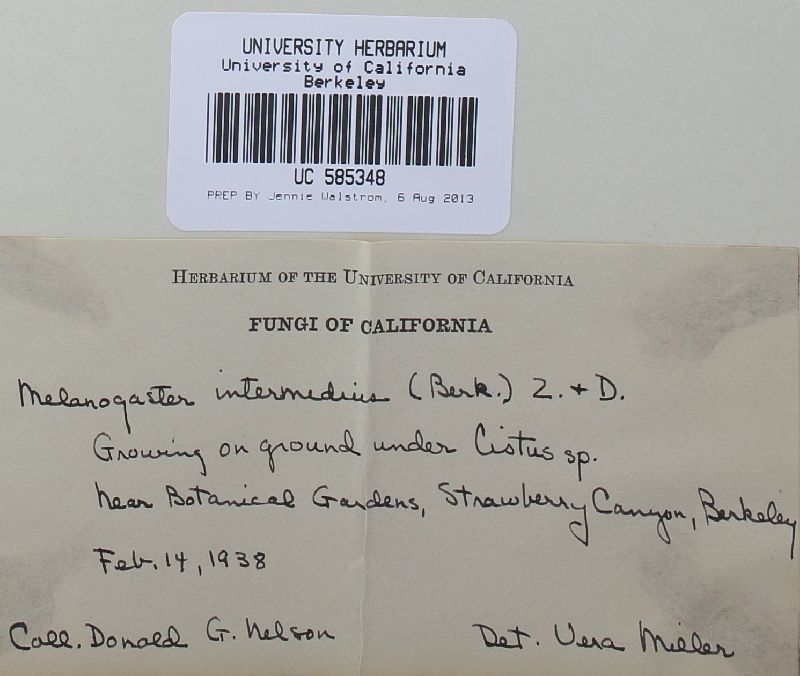 UNIVERSITY HERBARIUM
University of California
Berkeley
UC 585348
PREP BY Jennie Walstrom, 6 Aug 2013
HERBARIUM OF THE UNIVERSITY OF CALIFORNIA
FUNGI OF CALIFORNIA
Melanogaster intermedius (Berk.) Z. + D.
Growing on ground under Cistus sp.
near Botanical Gardens, Strawberry Canyon, Berkeley
Feb. 14, 1938
Coll. Donald G. Nelson Det. Vera Miller